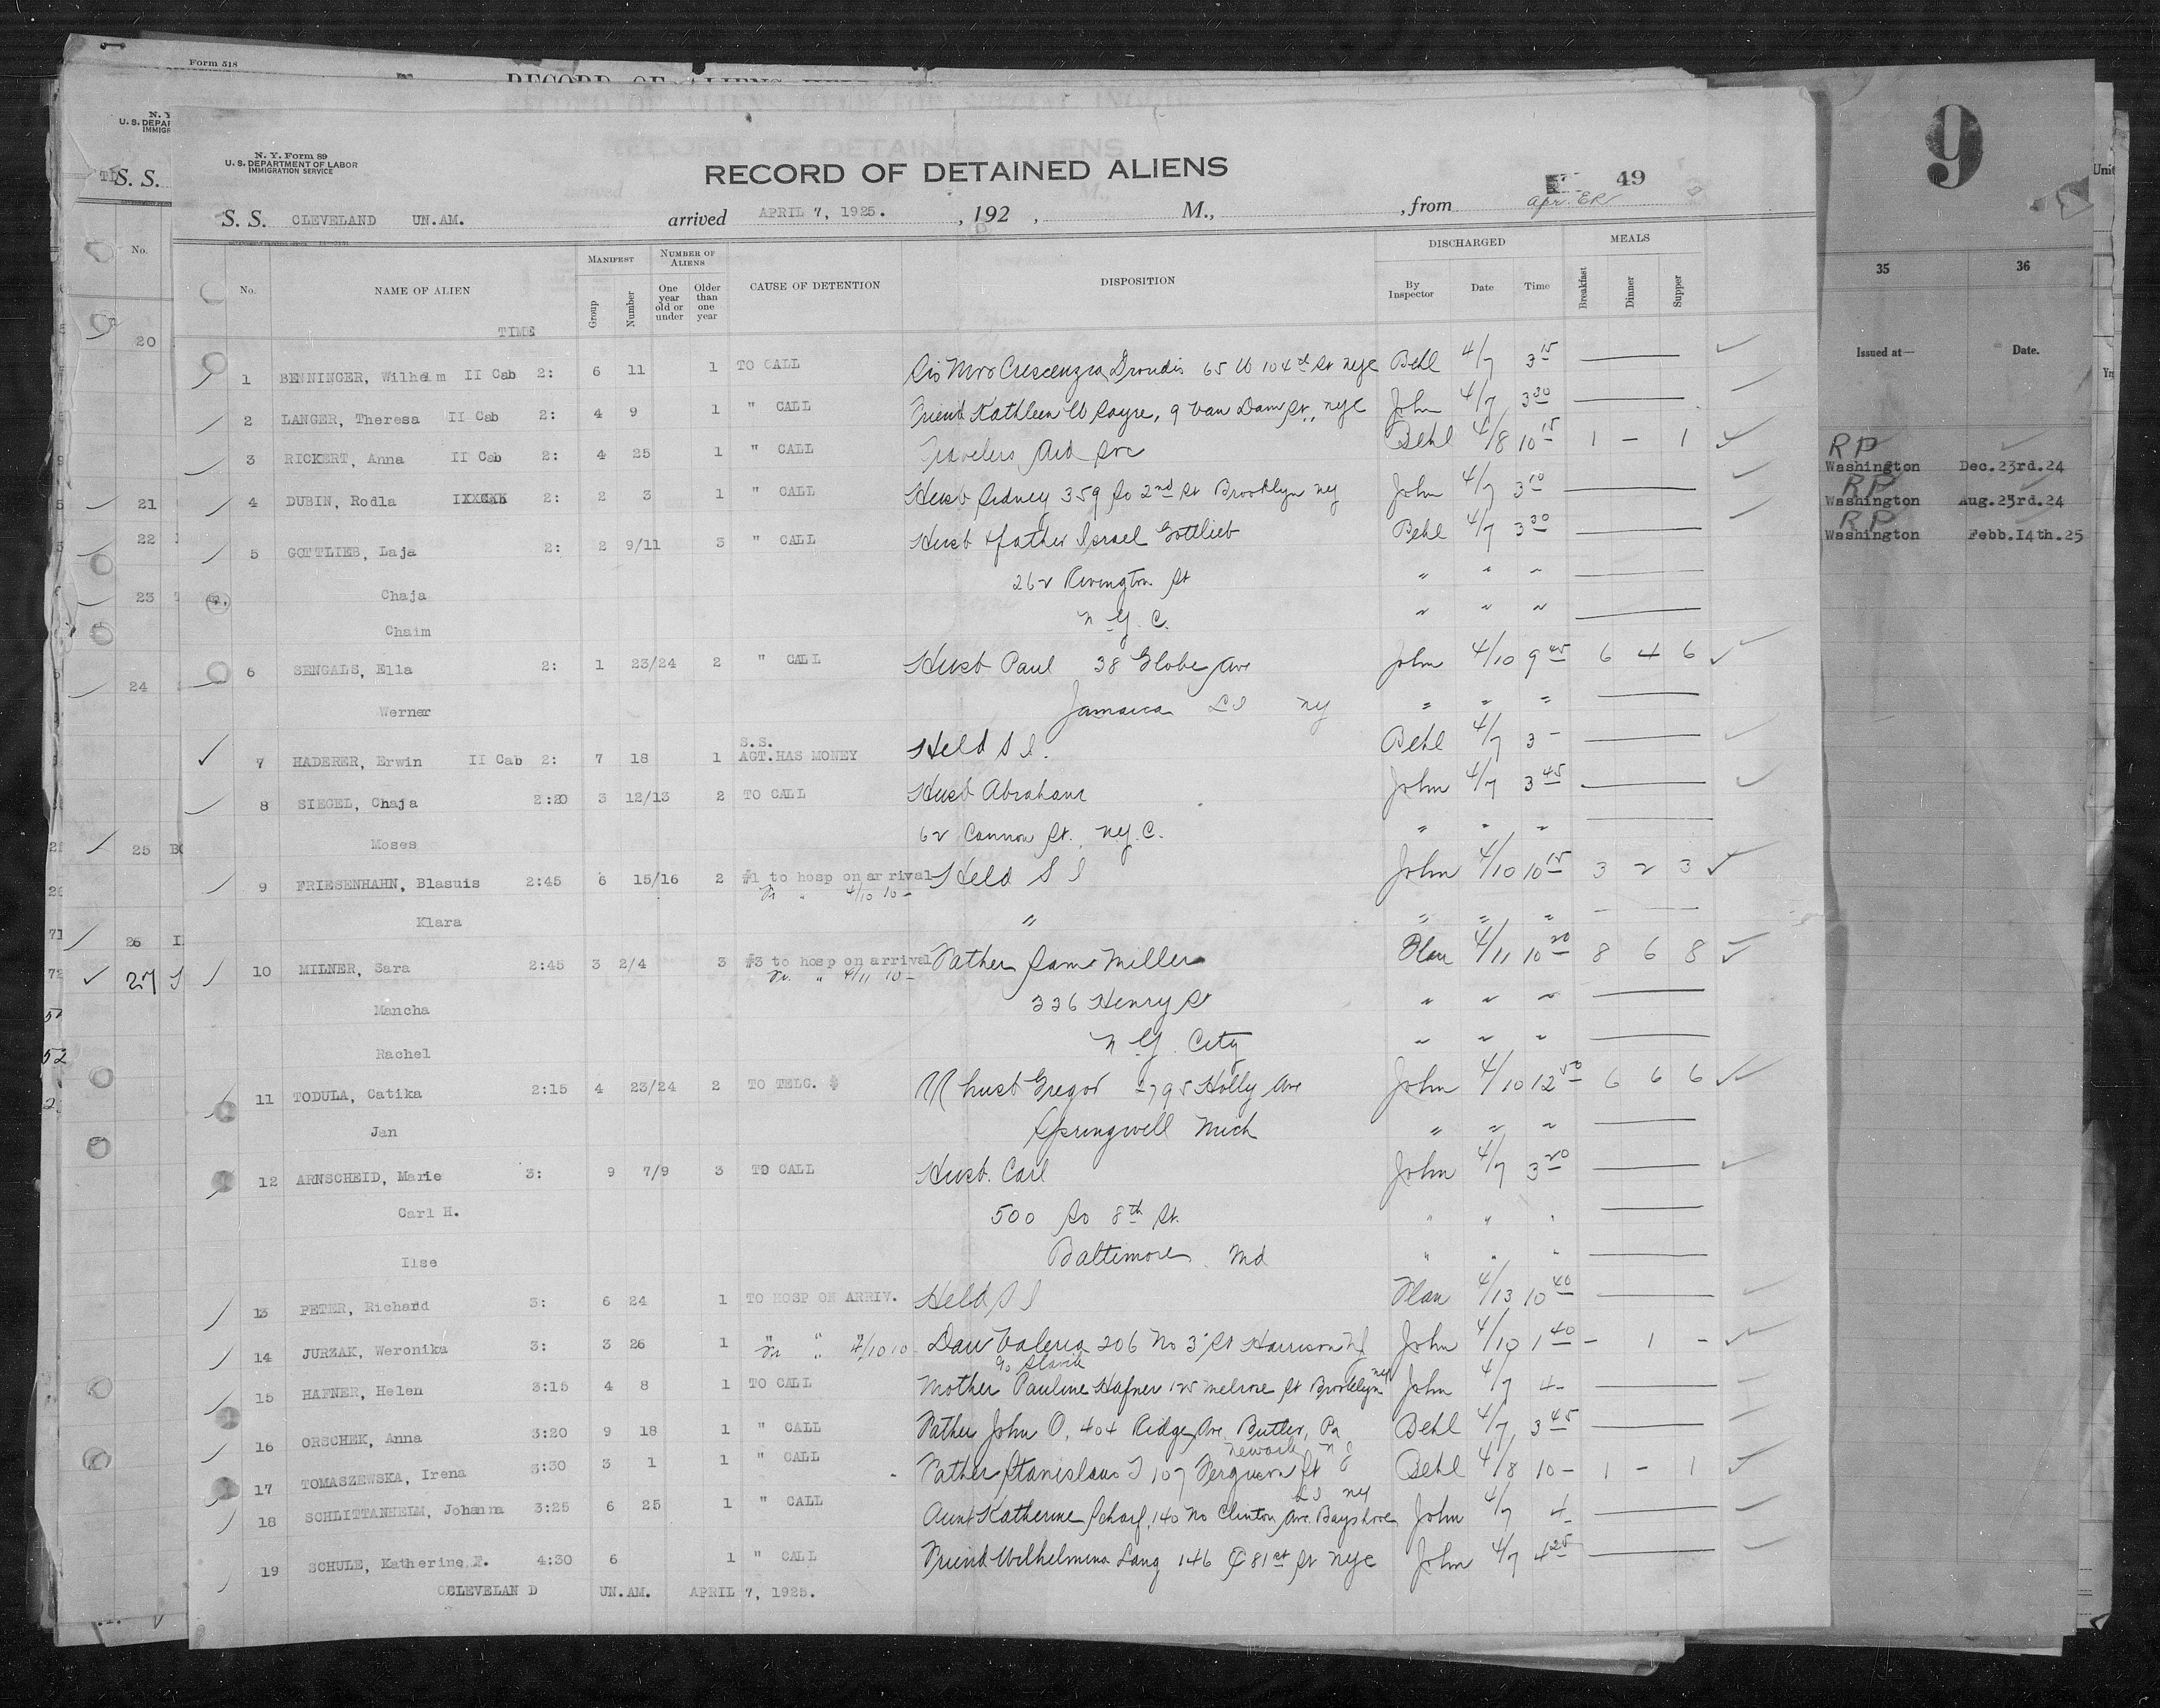 Form 518
N. Y. Form 89
U. S. DEPARTMENT OF LABOR
IMMIGRATION SERVICE
RECORD OF DETAINED ALIENS
49
9
S. S. CLEVELAND UN.AM. arrived APRIL 7, 1925. , 192 , M., , from
No. NAME OF ALIEN MANIFEST Group Number NUMBER OF ALIENS One year old or under Older than one year CAUSE OF DETENTION DISPOSITION DISCHARGED By Inspector Date Time MEALS Breakfast Dinner Supper
TIME
1 BENNINGER, Wilhelm II Cab 2: 6 11 1 TO CALL Sis Mrs Crescenzia 65 W 104th St nyc Behl 4/7 3 15
2 LANGER, Theresa II Cab 2: 4 9 1 " CALL Friend Kathleen W Sayre, 9 Van Dam St., nyc John 4/7 3 30
3 RICKERT, Anna II Cab 2: 4 25 1 " CALL Travelers Aid Soc Behl 4/8 10 15 1 – 1
4 DUBIN, Rodla 2: 2 3 1 " CALL Husb Sidney 359 So 2nd St Brooklyn ny John 4/7 3 10
5 GOTTLIEB, Laja 2: 2 9/11 3 " CALL Husb & father Israel Gottlieb Behl 4/7 3 30
Chaja 262 Rivington St " " "
Chaim N.Y.C. " " "
6 SENGALS, Ella 2: 1 23/24 2 " CALL Husb Paul 38 Globe Ave John 4/10 9 45 6 4 6
Werner Jamaica L I ny " " "
7 HADERER, Erwin II Cab 2: 7 18 1 S.S. AGT.HAS MONEY Held S I. Behl 4/7 3 –
8 SIEGEL, Chaja 2:20 3 12/13 2 TO CALL Husb Abraham John 4/7 3 45
Moses 62 Cannon St. N.Y.C. " " "
9 FRIESENHAHN, Blasuis 2:45 6 15/16 2 #1 to hosp on arrival Held S I John 4/10 10 15 3 2 3
4/10 10 –
Klara " " " "
10 MILNER, Sara 2:45 3 2/4 3 #3 to hosp on arrival Father Sam Miller Plan 4/11 10 20 8 6 8
" 4/11 10 –
Mancha 336 Henry St " " "
Rachel N.Y. City " " "
11 TODULA, Catika 2:15 4 23/24 2 TO TELG. $ husb Gregor 2795 Holly Ave John 4/10 12 50 6 6 6
Jan Springwell Mich " " "
12 ARNSCHEID, Marie 3: 9 7/9 3 TO CALL Husb. Carl John 4/7 3 20
Carl H. 500 So 8th St. " " "
Ilse Baltimore Md " " "
13 PETER, Richard 3: 6 24 1 TO HOSP ON ARRIV. Held S I Plan 4/13 10 40
14 JURZAK, Weronika 3: 3 26 1 " " " 4/10 10 Dau Valeria 206 No 3 St Harrison NJ John 4/10 1 40 – 1 –
15 HAFNER, Helen 3:15 4 8 1 TO CALL Mother Pauline Hafner 125 Melrose St Brooklyn ny John 4/7 4 –
16 ORSCHEK, Anna 3:20 9 18 1 " CALL Father John O, 404 Ridge Ave Butler, Pa Behl 4/7 3 45
17 TOMASZEWSKA, Irena 3:30 3 1 1 " CALL Father Stanislaus T 107 Ferguson St Newark N J Behl 4/8 10 – 1 – 1
18 SCHLITTANHEIM, Johanna 3:25 6 25 1 " CALL Aunt Katherine Scharf, 140 No Clinton Ave. Bayshore L I ny John 4/7 4 –
19 SCHULE, Katherine F. 4:30 6 1 " CALL Friend Wilhelmina Lang 146 E 81st St nyc John 4/7 4 25
CLEVELAND UN.AM. APRIL 7, 1925.
S. S.
No.
20
21
22
23
24
25
26
27
35 36
Issued at— Date.
RP
Washington Dec.23rd.24
RP
Washington Aug.23rd.24
RP
Washington Febb.14th.25